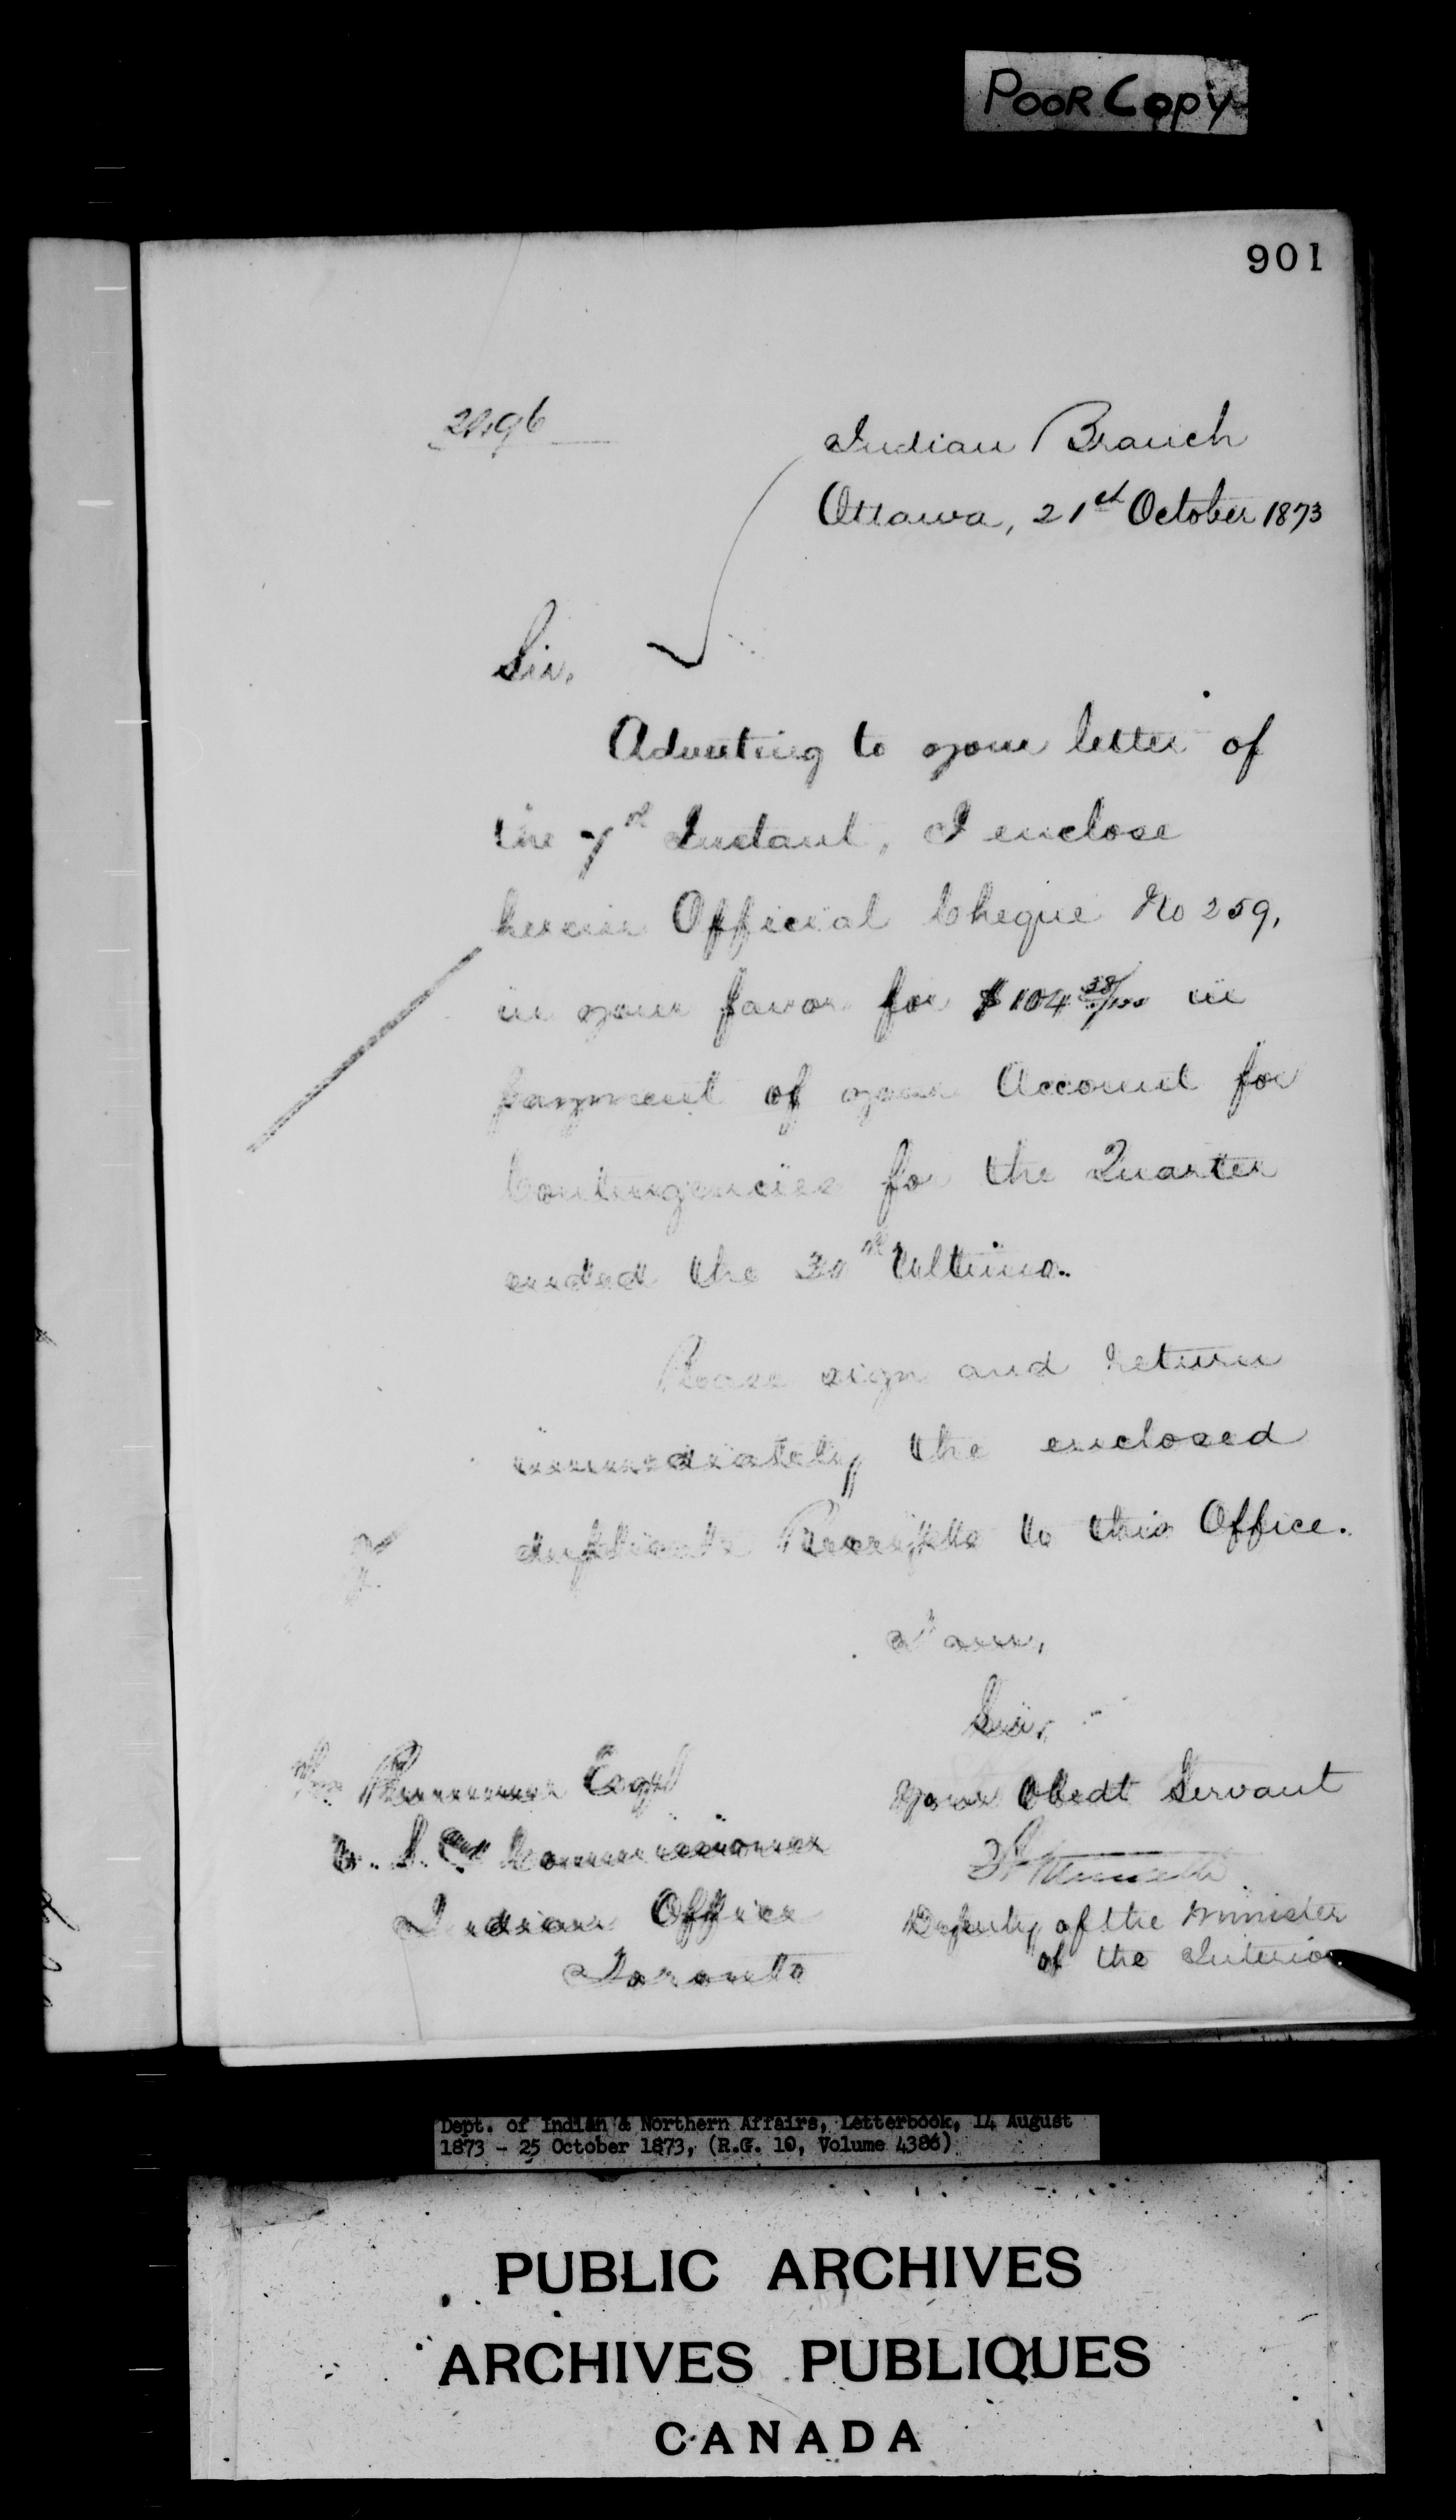 POOR COPY
901
Indian Branch
Ottawa, 21st October 1873
Sir,
Adverting to your letter of
the 7th Instant, I enclose
herein Official Cheque No 259,
in your favor for $104 38/100 in
payment of your Account for
Contingencies for the Quarter
ended the 30th Ultimo.
Please sign and return
immediately the enclosed
duplicate Receipts to this Office.
I am,
Sir,
Your Obedt Servant
Deputy of the Minister
of the Interior
Esqr
Commissioner
Indian Office
Toronto
Dept. of Indian & Northern Affairs, Letterbook, 14 August
1873 - 25 October 1873, (R.G. 10, Volume 4386)
PUBLIC ARCHIVES
ARCHIVES PUBLIQUES
CANADA